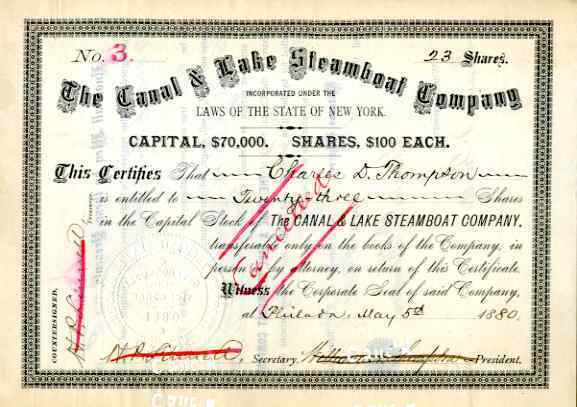 No. 3.
23 Shares.
The Canal & Lake Steamboat Company
INCORPORATED UNDER THE
LAWS OF THE STATE OF NEW YORK.
CAPITAL, $70,000. SHARES, $100 EACH.
This Certifies That Charles D. Thompson
is entitled to Twenty three Shares
in the Capital Stock of The CANAL & LAKE STEAMBOAT COMPANY.
transferable only on the books of the Company, in
person or by attorney, on return of this Certificate.
Witness the Corporate Seal of said Company,
at Philada May 5th 1880.
Cancelled
COUNTERSIGNED,
Treasurer
Secretary.
President.